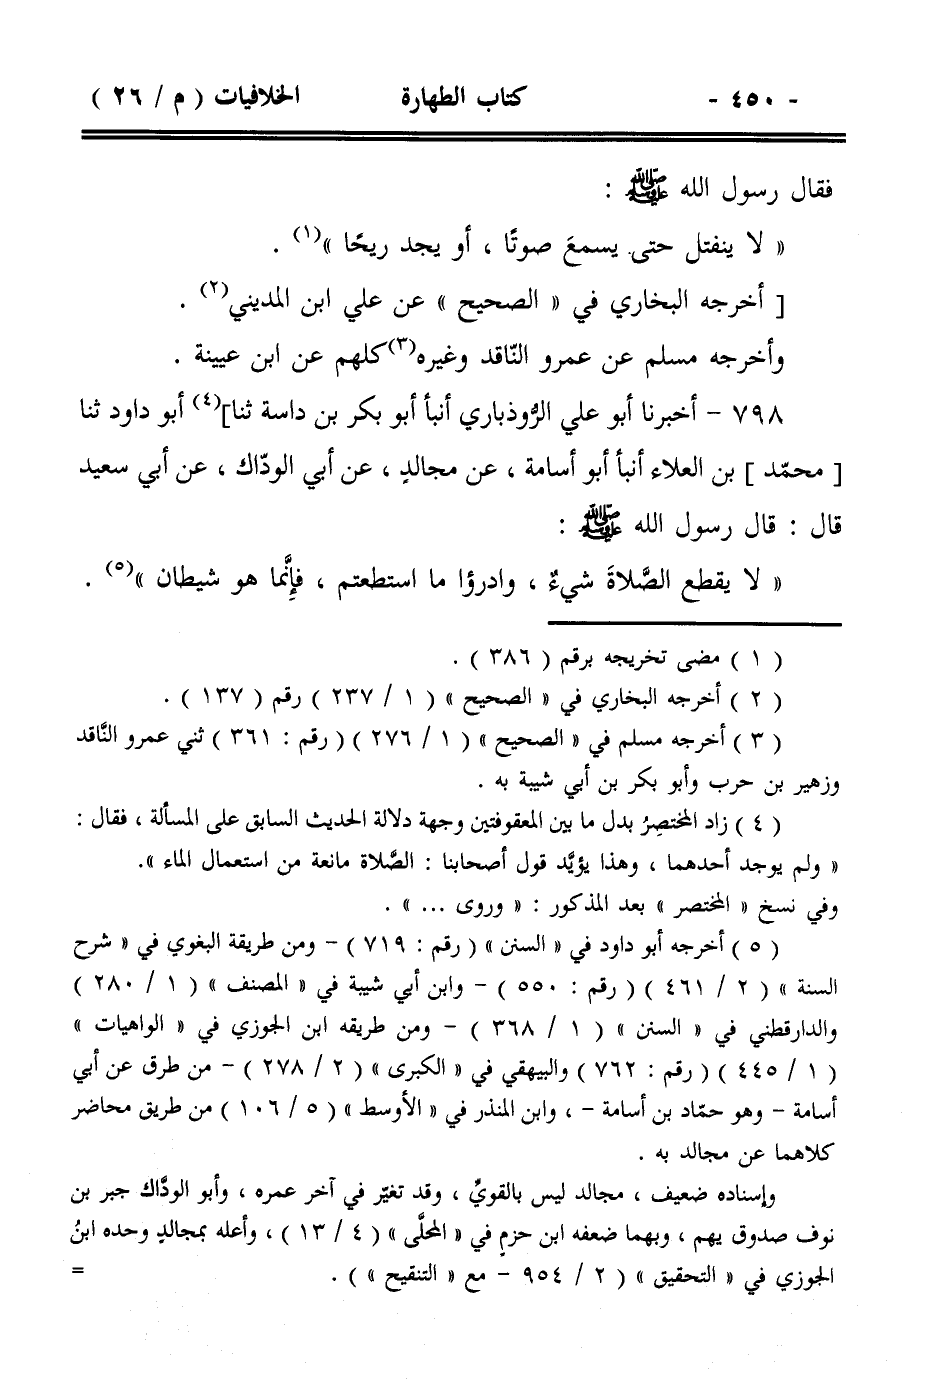 - ٤٥٠ - كتاب الطهارة الخلافيات ( م / ٢٦ )
فقال رسول الله ﷺ :
« لا ينفتل حتى يسمعَ صوتًا ، أو يجد ريحًا »(١) .
[ أخرجه البخاري في « الصحيح » عن علي ابن المديني(٢) .
وأخرجه مسلم عن عمرو النّاقد وغيره(٣) كلهم عن ابن عيينة .
٧٩٨ - أخبرنا أبو علي الرُّوذباري أنبأ أبو بكر بن داسة ثنا](٤) أبو داود ثنا
[ محمّد ] بن العلاء أنبأ أبو أسامة ، عن مجالدٍ ، عن أبي الودّاك ، عن أبي سعيد
قال : قال رسول الله ﷺ :
« لا يقطع الصَّلاةَ شيءٌ ، وادرؤا ما استطعتم ، فإِنَّما هو شيطان »(٥) .
( ١ ) مضى تخريجه برقم ( ٣٨٦ ) .
( ٢ ) أخرجه البخاري في « الصحيح » ( ١ / ٢٣٧ ) رقم ( ١٣٧ ) .
( ٣ ) أخرجه مسلم في « الصحيح » ( ١ / ٢٧٦ ) ( رقم : ٣٦١ ) ثني عمرو النَّاقد
وزهير بن حرب وأبو بكر بن أبي شيبة به .
( ٤ ) زاد المختصِرُ بدل ما بين المعقوفتين وجهة دلالة الحديث السابق على المسألة ، فقال :
« ولم يوجد أحدهما ، وهذا يؤيَّد قول أصحابنا : الصَّلاة مانعة من استعمال الماء ».
وفي نسخ « المختصر » بعد المذكور : « وروى ... » .
( ٥ ) أخرجه أبو داود في « السنن » ( رقم : ٧١٩ ) - ومن طريقة البغوي في « شرح
السنة » ( ٢ / ٤٦١ ) ( رقم : ٥٥٠ ) - وابن أبي شيبة في « المصنف » ( ١ / ٢٨٠ )
والدارقطني في « السنن » ( ١ / ٣٦٨ ) - ومن طريقه ابن الجوزي في « الواهيات »
( ١ / ٤٤٥ ) ( رقم : ٧٦٢ ) والبيهقي في « الكبرى » ( ٢ / ٢٧٨ ) - من طرق عن أبي
أسامة - وهو حمّاد بن أسامة - ، وابن المنذر في « الأوسط » ( ٥ / ١٠٦ ) من طريق محاضر
كلاهما عن مجالد به .
وإسناده ضعيف ، مجالد ليس بالقويِّ ، وقد تغيّر في آخر عمره ، وأبو الودَّاك جبر بن
نوف صدوق يهم ، وبهما ضعفه ابن حزمٍ في « المحلَّى » ( ٤ / ١٣ ) ، وأعله بمجالدٍ وحده ابنُ
الجوزي في « التحقيق » ( ٢ / ٩٥٤ - مع « التنقيح » ) . =